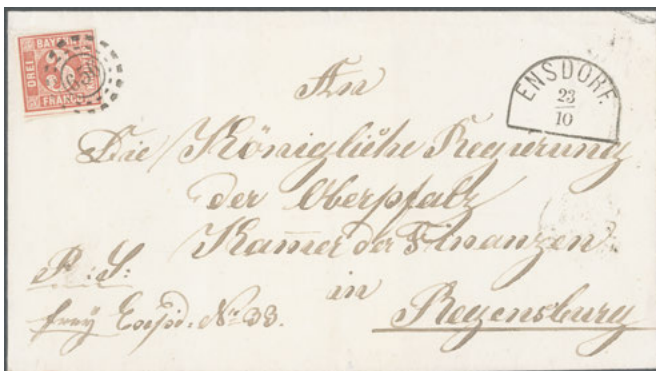 BAYERN
DREI
3
FRANCO
ENSDORF.
23
10
An
Die Königliche Regierung
der Oberpfalz
Kam̅er der Finanzen
in
Regensburg
P. S:
frey Exped. No 33.